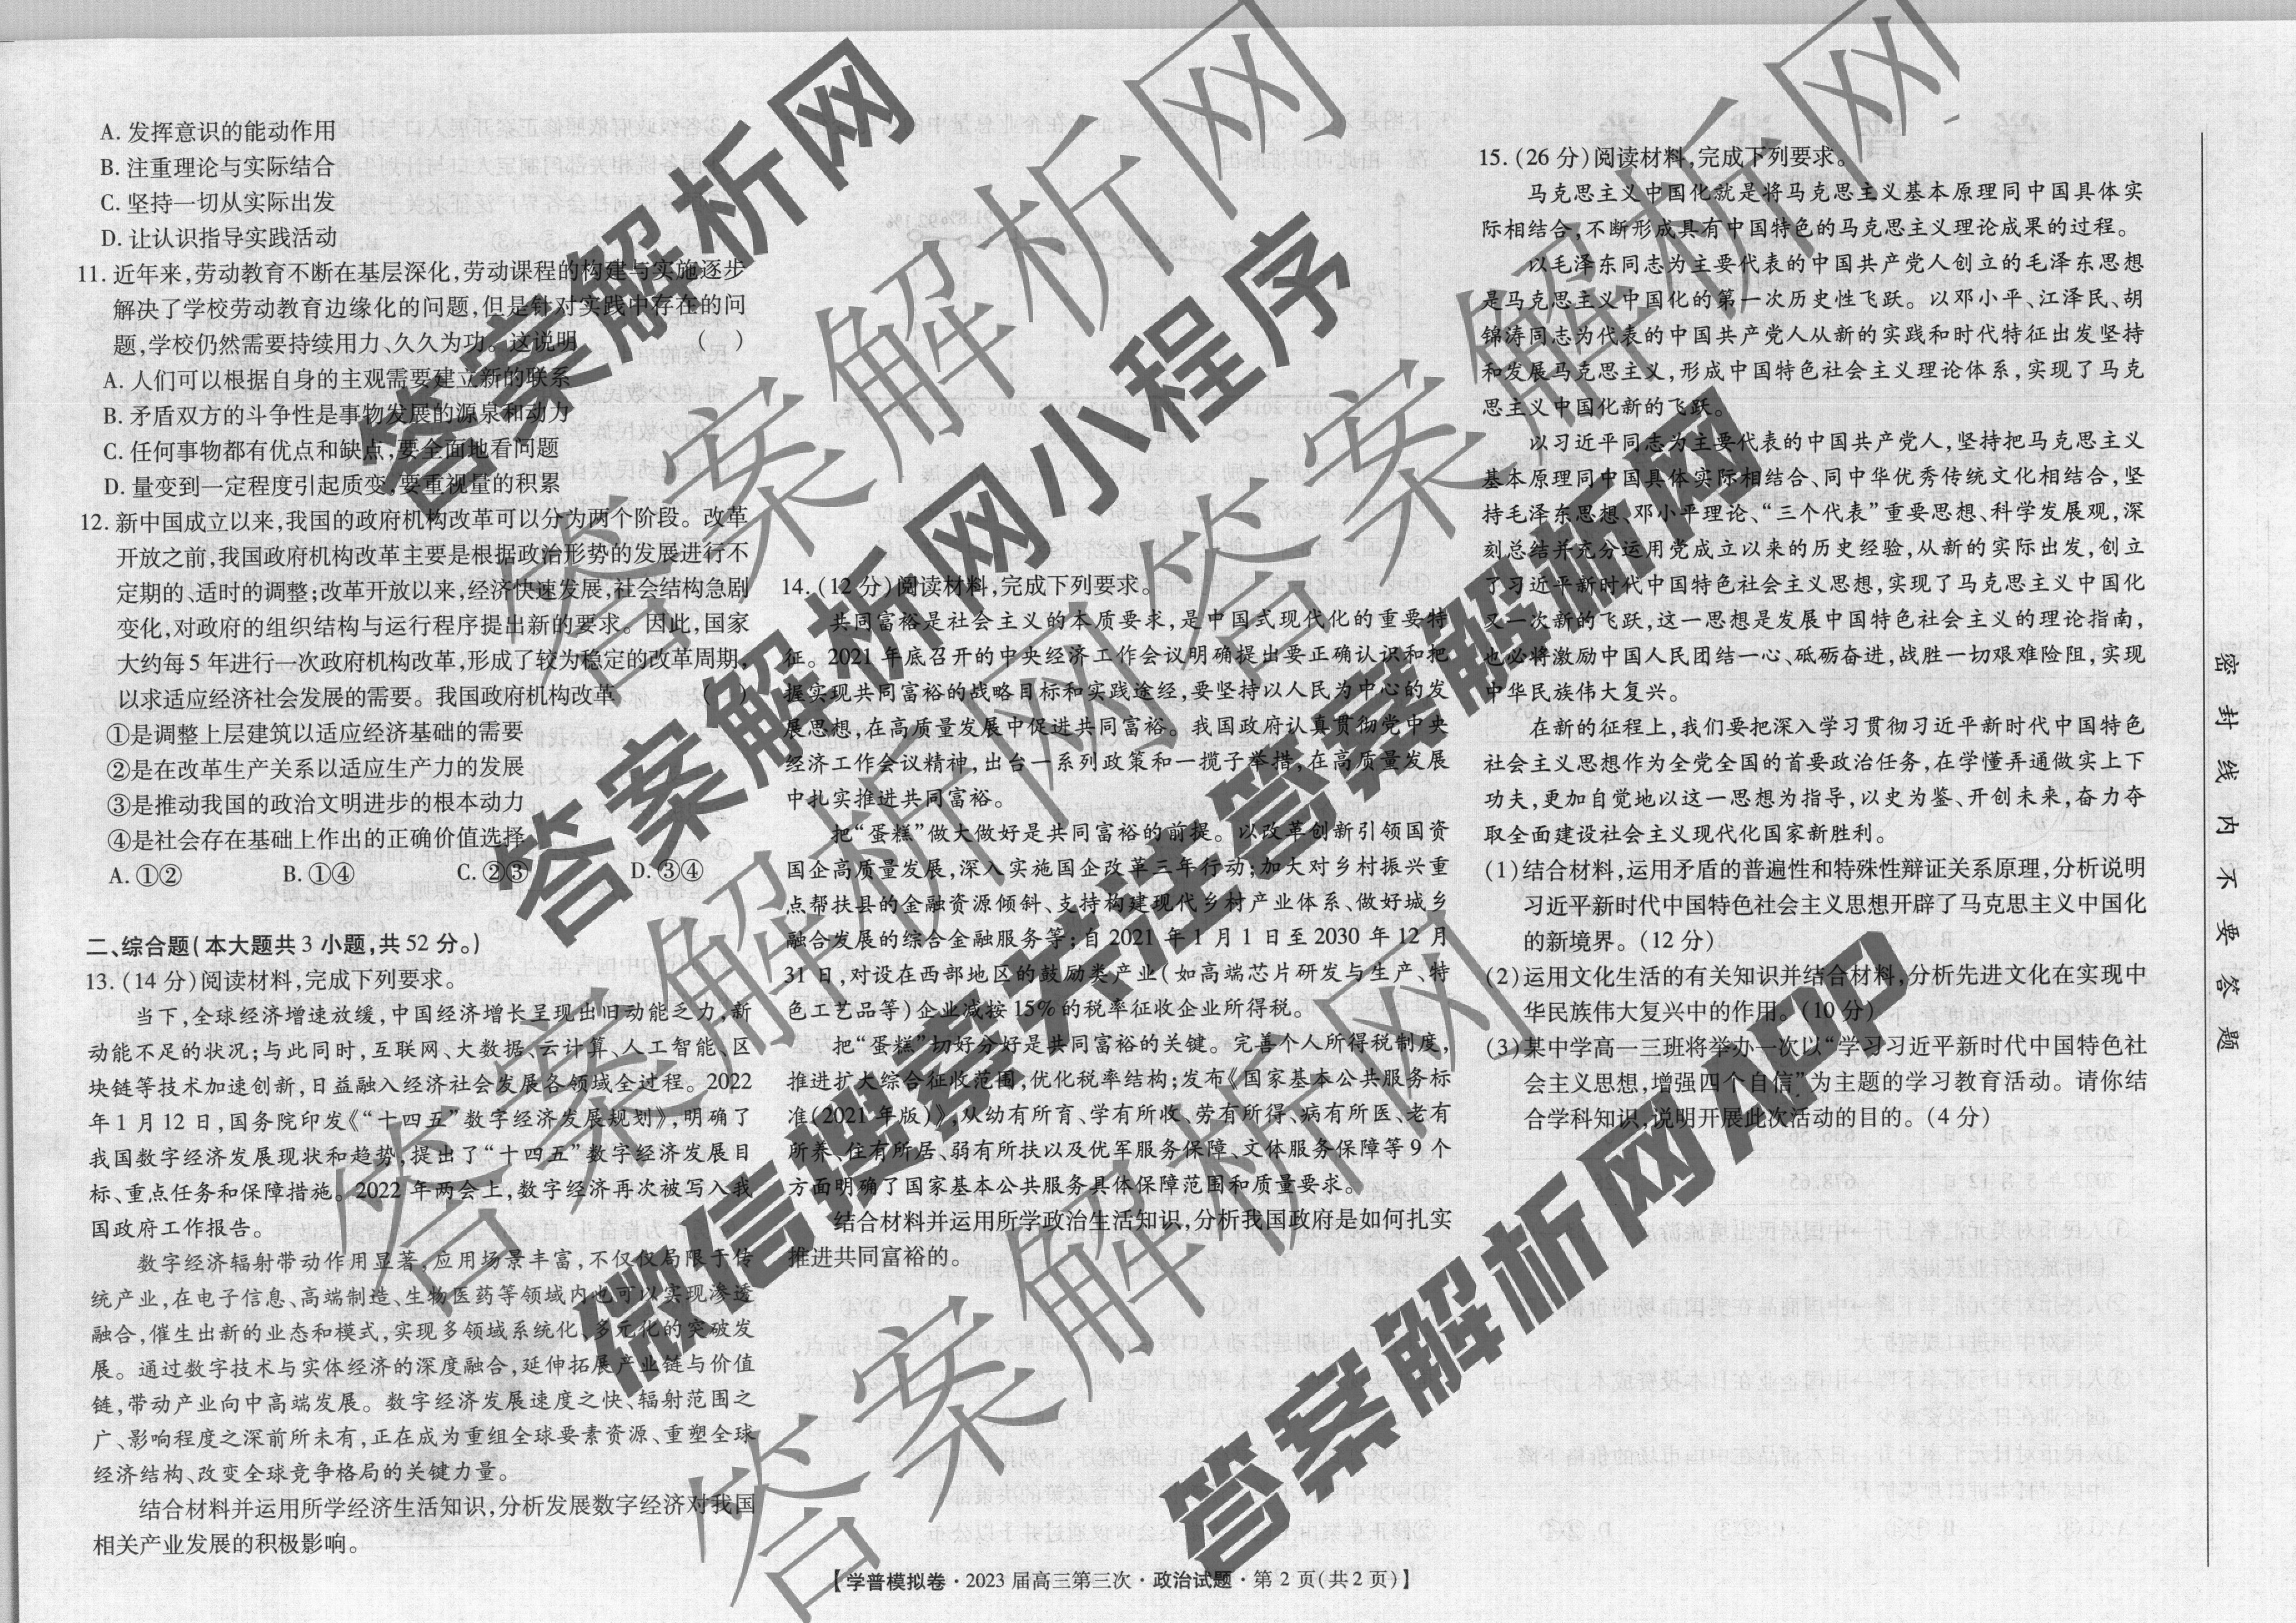 A. 发挥意识的能动作用
B. 注重理论与实际结合
C. 坚持一切从实际出发
D. 让认识指导实践活动
11. 近年来,劳动教育不断在基层深化,劳动课程的构建与实施逐步
解决了学校劳动教育边缘化的问题,但是针对实践中存在的问
题,学校仍然需要持续用力、久久为功。这说明 ( )
A. 人们可以根据自身的主观需要建立新的联系
B. 矛盾双方的斗争性是事物发展的源泉和动力
C. 任何事物都有优点和缺点,要全面地看问题
D. 量变到一定程度引起质变,要重视量的积累
12. 新中国成立以来,我国的政府机构改革可以分为两个阶段。改革
开放之前,我国政府机构改革主要是根据政治形势的发展进行不
定期的、适时的调整;改革开放以来,经济快速发展,社会结构急剧
变化,对政府的组织结构与运行程序提出新的要求。因此,国家
大约每5年进行一次政府机构改革,形成了较为稳定的改革周期,
以求适应经济社会发展的需要。我国政府机构改革 ( )
①是调整上层建筑以适应经济基础的需要
②是在改革生产关系以适应生产力的发展
③是推动我国的政治文明进步的根本动力
④是社会存在基础上作出的正确价值选择
A. ①② B. ①④ C. ②③ D. ③④
二、综合题(本大题共3小题,共52分。)
13. (14分)阅读材料,完成下列要求。
当下,全球经济增速放缓,中国经济增长呈现出旧动能乏力,新
动能不足的状况;与此同时,互联网、大数据、云计算、人工智能、区
块链等技术加速创新,日益融入经济社会发展各领域全过程。2022
年1月12日,国务院印发《“十四五”数字经济发展规划》,明确了
我国数字经济发展现状和趋势,提出了“十四五”数字经济发展目
标、重点任务和保障措施。2022年两会上,数字经济再次被写入我
国政府工作报告。
数字经济辐射带动作用显著,应用场景丰富,不仅仅局限于传
统产业,在电子信息、高端制造、生物医药等领域内也可以实现渗透
融合,催生出新的业态和模式,实现多领域系统化、多元化的突破发
展。通过数字技术与实体经济的深度融合,延伸拓展产业链与价值
链,带动产业向中高端发展。数字经济发展速度之快、辐射范围之
广、影响程度之深前所未有,正在成为重组全球要素资源、重塑全球
经济结构、改变全球竞争格局的关键力量。
结合材料并运用所学经济生活知识,分析发展数字经济对我国
相关产业发展的积极影响。
14. (12分)阅读材料,完成下列要求。
共同富裕是社会主义的本质要求,是中国式现代化的重要特
征。2021年底召开的中央经济工作会议明确提出要正确认识和把
握实现共同富裕的战略目标和实践途经,要坚持以人民为中心的发
展思想,在高质量发展中促进共同富裕。我国政府认真贯彻党中央
经济工作会议精神,出台一系列政策和一揽子举措,在高质量发展
中扎实推进共同富裕。
把“蛋糕”做大做好是共同富裕的前提。以改革创新引领国资
国企高质量发展,深入实施国企改革三年行动;加大对乡村振兴重
点帮扶县的金融资源倾斜、支持构建现代乡村产业体系、做好城乡
融合发展的综合金融服务等;自2021年1月1日至2030年12月
31日,对设在西部地区的鼓励类产业(如高端芯片研发与生产、特
色工艺品等)企业减按15%的税率征收企业所得税。
把“蛋糕”切好分好是共同富裕的关键。完善个人所得税制度,
推进扩大综合征收范围,优化税率结构;发布《国家基本公共服务标
准(2021年版)》,从幼有所育、学有所收、劳有所得、病有所医、老有
所养、住有所居、弱有所扶以及优军服务保障、文体服务保障等9个
方面明确了国家基本公共服务具体保障范围和质量要求。
结合材料并运用所学政治生活知识,分析我国政府是如何扎实
推进共同富裕的。
15. (26分)阅读材料,完成下列要求。
马克思主义中国化就是将马克思主义基本原理同中国具体实
际相结合,不断形成具有中国特色的马克思主义理论成果的过程。
以毛泽东同志为主要代表的中国共产党人创立的毛泽东思想
是马克思主义中国化的第一次历史性飞跃。以邓小平、江泽民、胡
锦涛同志为代表的中国共产党人从新的实践和时代特征出发坚持
和发展马克思主义,形成中国特色社会主义理论体系,实现了马克
思主义中国化新的飞跃。
以习近平同志为主要代表的中国共产党人,坚持把马克思主义
基本原理同中国具体实际相结合、同中华优秀传统文化相结合,坚
持毛泽东思想、邓小平理论、“三个代表”重要思想、科学发展观,深
刻总结并充分运用党成立以来的历史经验,从新的实际出发,创立
了习近平新时代中国特色社会主义思想,实现了马克思主义中国化
又一次新的飞跃,这一思想是发展中国特色社会主义的理论指南,
也必将激励中国人民团结一心、砥砺奋进,战胜一切艰难险阻,实现
中华民族伟大复兴。
在新的征程上,我们要把深入学习贯彻习近平新时代中国特色
社会主义思想作为全党全国的首要政治任务,在学懂弄通做实上下
功夫,更加自觉地以这一思想为指导,以史为鉴、开创未来,奋力夺
取全面建设社会主义现代化国家新胜利。
(1)结合材料,运用矛盾的普遍性和特殊性辩证关系原理,分析说明
习近平新时代中国特色社会主义思想开辟了马克思主义中国化
的新境界。(12分)
(2)运用文化生活的有关知识并结合材料,分析先进文化在实现中
华民族伟大复兴中的作用。(10分)
(3)某中学高一三班将举办一次以“学习习近平新时代中国特色社
会主义思想,增强四个自信”为主题的学习教育活动。请你结
合学科知识,说明开展此次活动的目的。(4分)
密封线内不要答题
【学普模拟卷·2023届高三第三次·政治试题·第2页(共2页)】
答案解析网
答案解析网
答案解析网小程序
答案解析网
答案解析网
微信搜索关注答案解析网
答案解析网
答案解析网APP